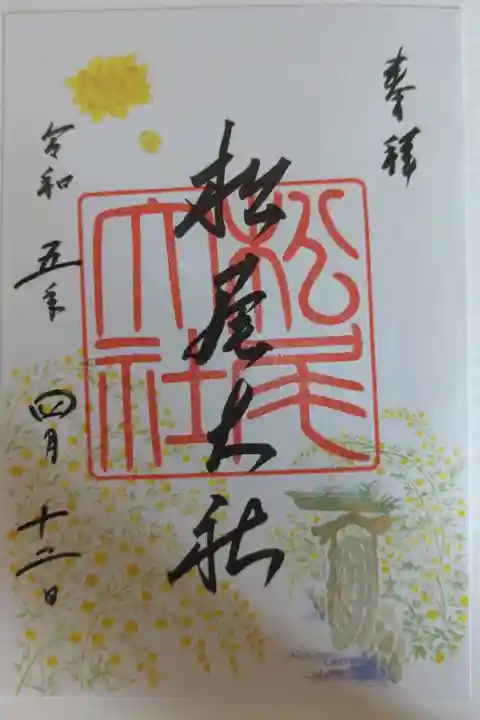 奉拝
松尾大社
松尾大社
令和五年四月十二日